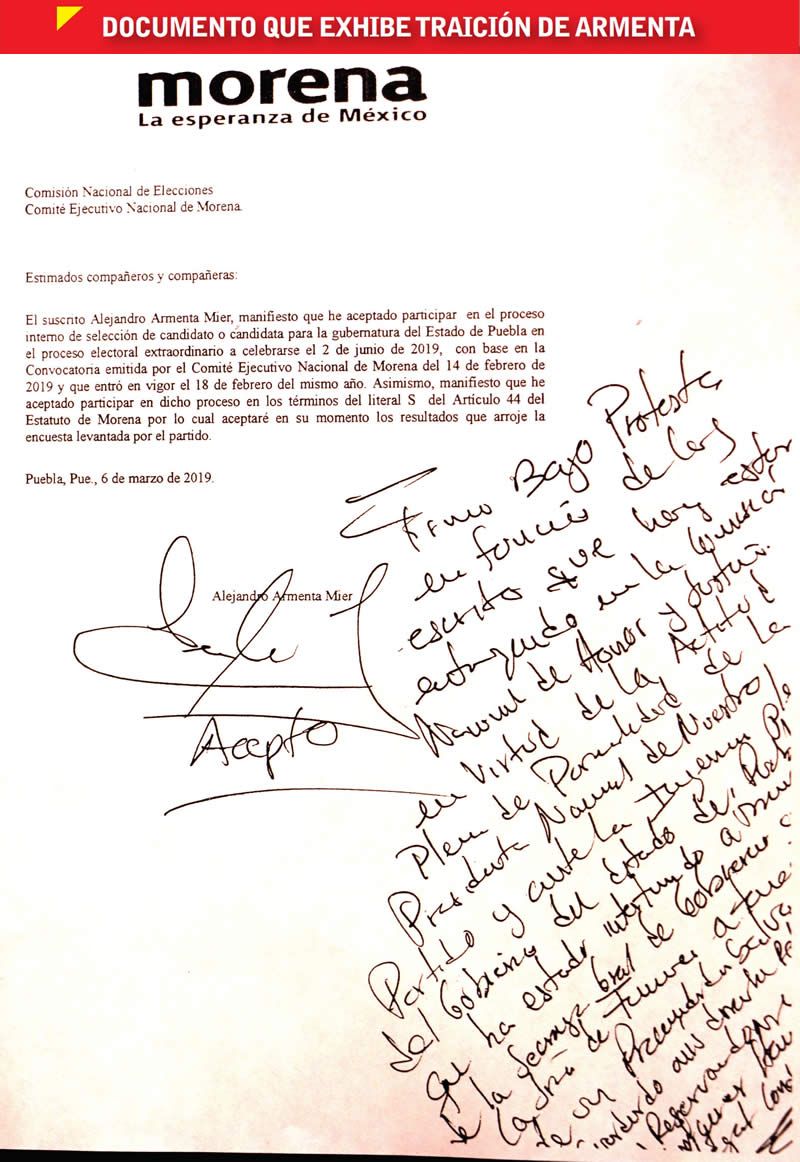 DOCUMENTO QUE EXHIBE TRAICIÓN DE ARMENTA
morena
La esperanza de México
Comisión Nacional de Elecciones
Comité Ejecutivo Nacional de Morena.
Estimados compañeros y compañeras:
El suscrito Alejandro Armenta Mier, manifiesto que he aceptado participar en el proceso
interno de selección de candidato o candidata para la gubernatura del Estado de Puebla en
el proceso electoral extraordinario a celebrarse el 2 de junio de 2019, con base en la
Convocatoria emitida por el Comité Ejecutivo Nacional de Morena del 14 de febrero de
2019 y que entró en vigor el 18 de febrero del mismo año. Asimismo, manifiesto que he
aceptado participar en dicho proceso en los términos del literal S del Artículo 44 del
Estatuto de Morena por lo cual aceptaré en su momento los resultados que arroje la
encuesta levantada por el partido.
Puebla, Pue., 6 de marzo de 2019.
Alejandro Armenta Mier
Acepto
Firmo Bajo Protesta
en función de los
escrito que hoy estoy
entregando en la Comisión
Nacional de Honor y Justicia
en virtud de la Actitud
Plena de Parcialidad de la
Presidenta Nacional de Nuestro
Partido y ante la
del Gobierno del estado de
que ha estado
de la Secretaria Gral de Gobierno
de un